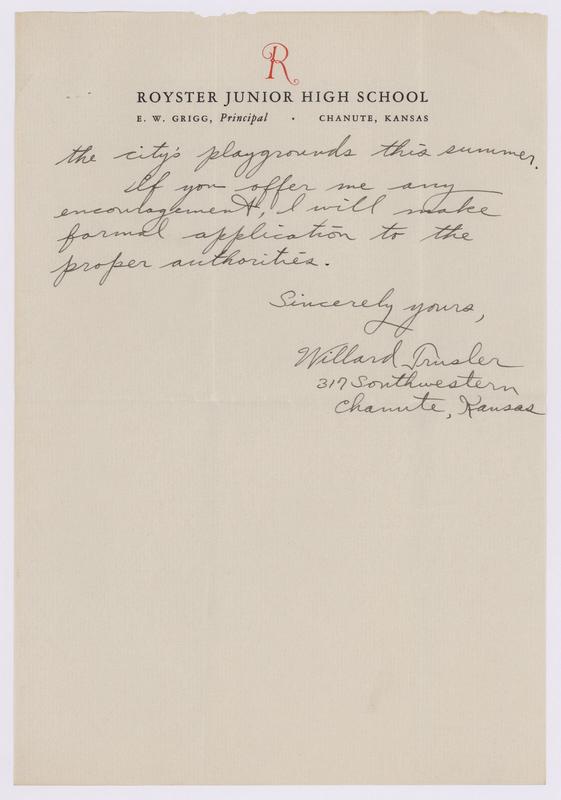 R
ROYSTER JUNIOR HIGH SCHOOL
E. W. GRIGG, Principal · CHANUTE, KANSAS
the city's playgrounds this summer.
If you offer me any
encouragement, I will make
formal application to the
proper authorities.
Sincerely yours,
Willard Trusler
317 Southwestern
Chanute, Kansas